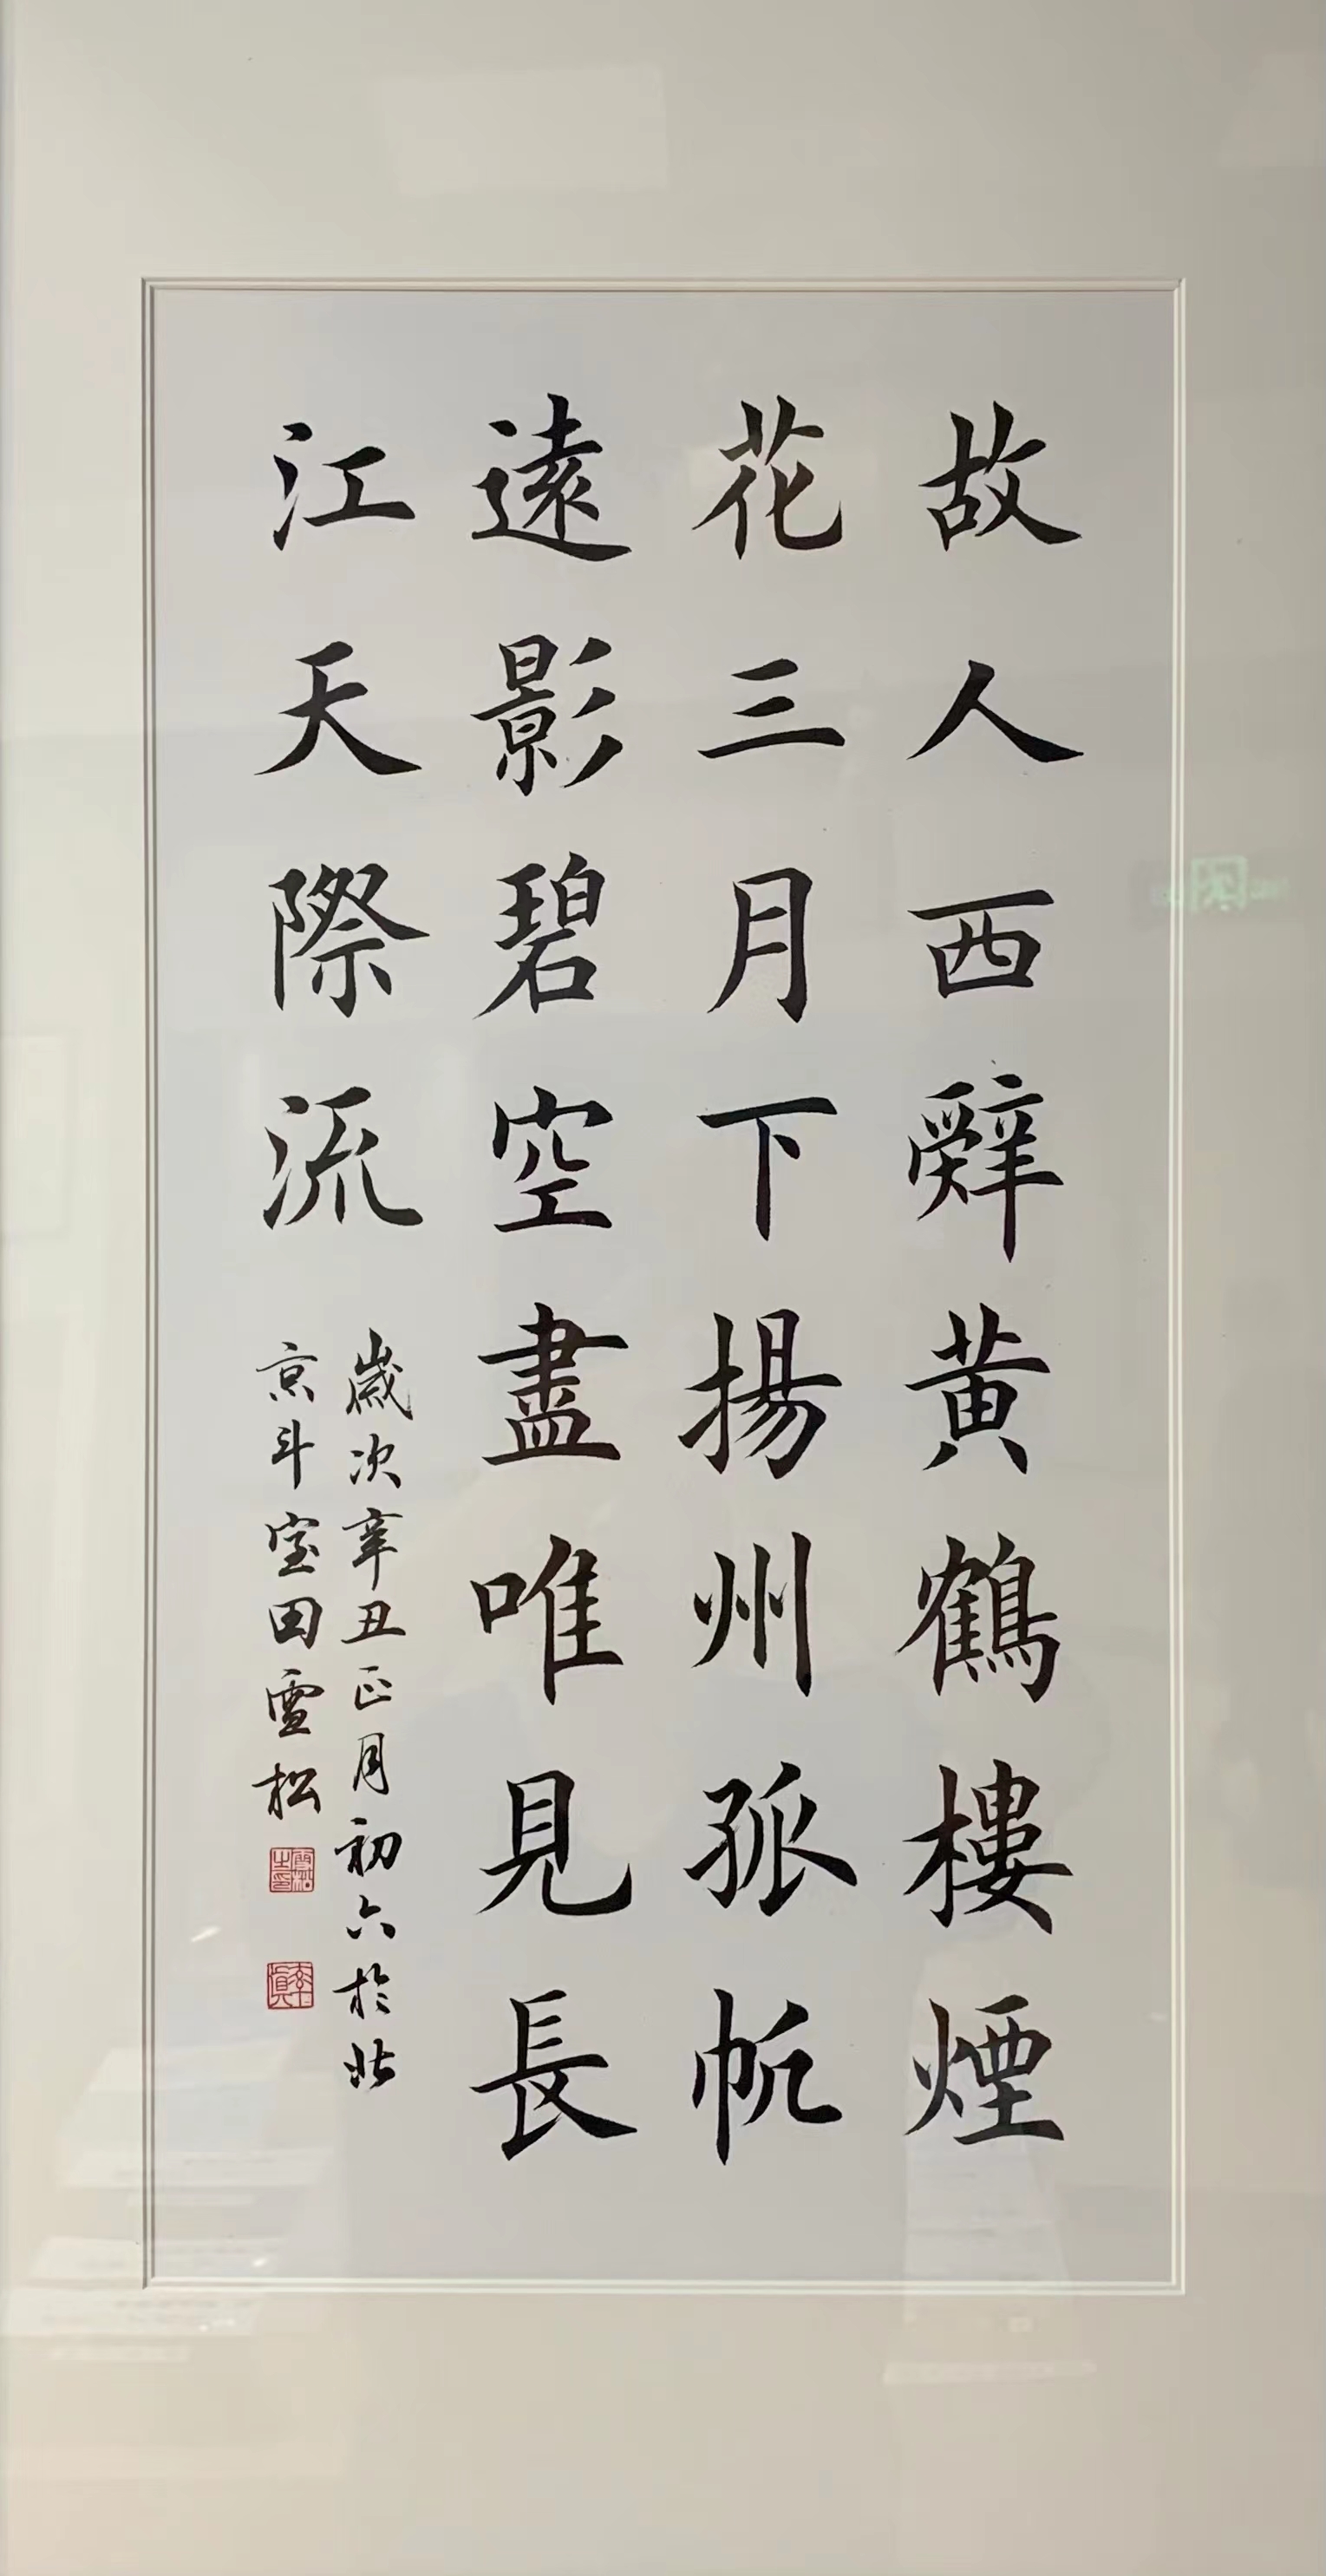 故人西辭黄鶴樓煙
花三月下揚州孤帆
遠影碧空盡唯見長
江天際流
歲次辛丑正月初六於北
京斗室田雪松